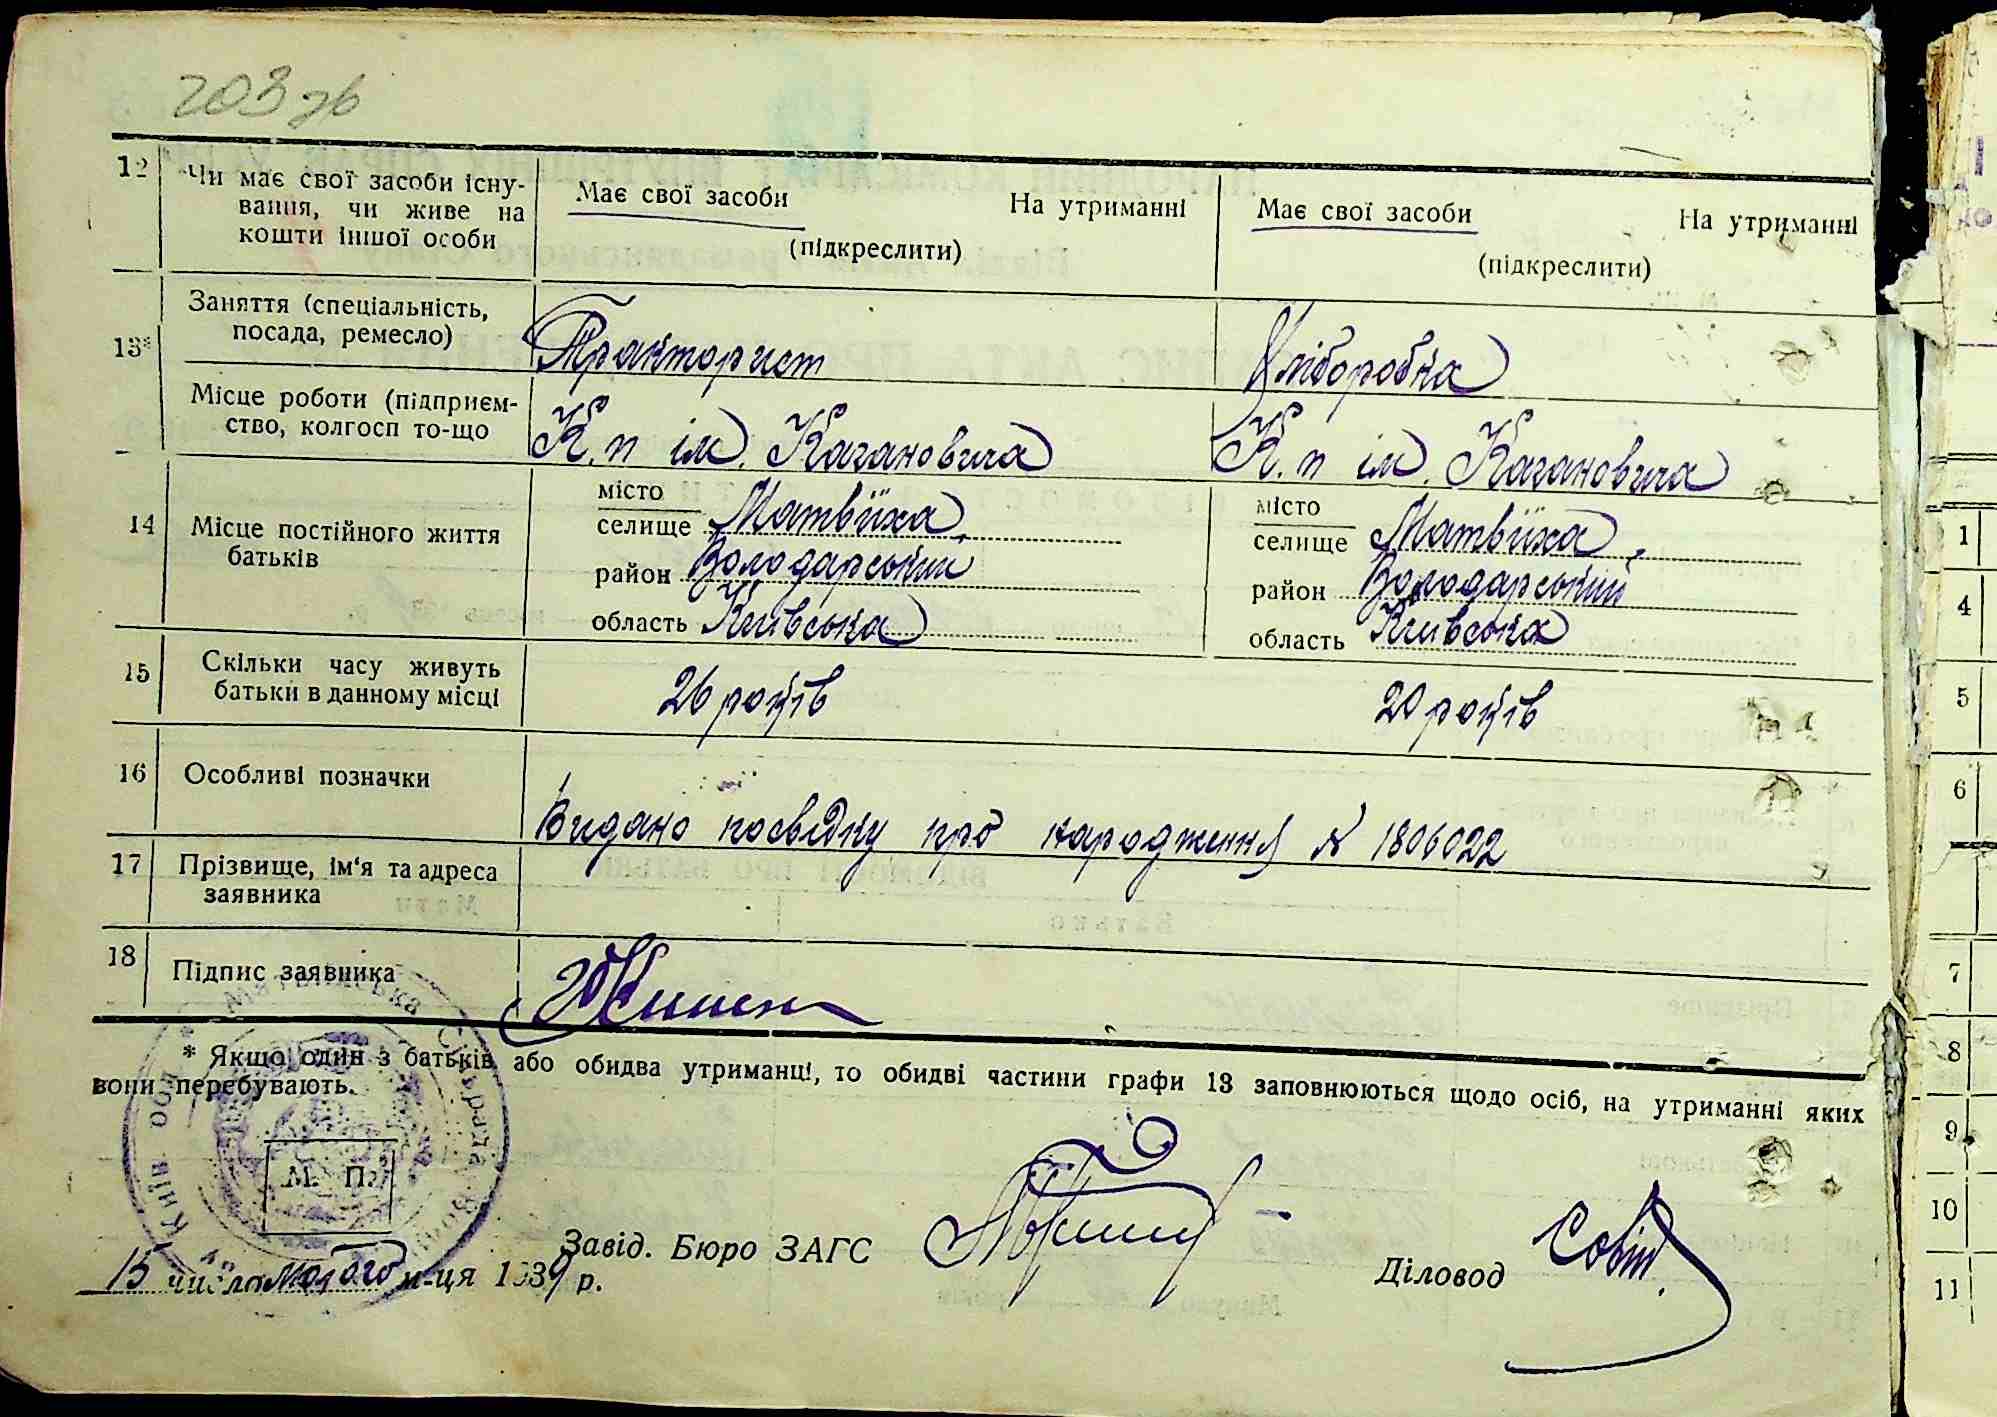 203 зв
12 Чи має свої засоби існу-
вання, чи живе на
кошти іншої особи
Має свої засоби На утриманні
(підкреслити)
Має свої засоби На утриманні
(підкреслити)
13* Заняття (спеціальність,
посада, ремесло)
Тракторист
Хліборобка
Місце роботи (підприєм-
ство, колгосп то-що
К.п ім. Кагановича
К.п ім. Кагановича
14 Місце постійного життя
батьків
місто
селище Матвїіха,
район Володарський
область Київська
місто
селище Матвїіха,
район Володарський
область Київська
15 Скільки часу живуть
батьки в данному місці
26 років
20 років
16 Особливі позначки
Видано посвідку про народження № 1806022
17 Прізвище, ім'я та адреса
заявника
18 Підпис заявника
* Якщо один з батьків або обидва утриманці, то обидві частини графи 13 заповнюються щодо осіб, на утриманні яких
вони перебувають.
М. П.
Завід. Бюро ЗАГС
Діловод
15 числа лютого м-ця 1939 р.
1
4
5
6
7
8
9
10
11